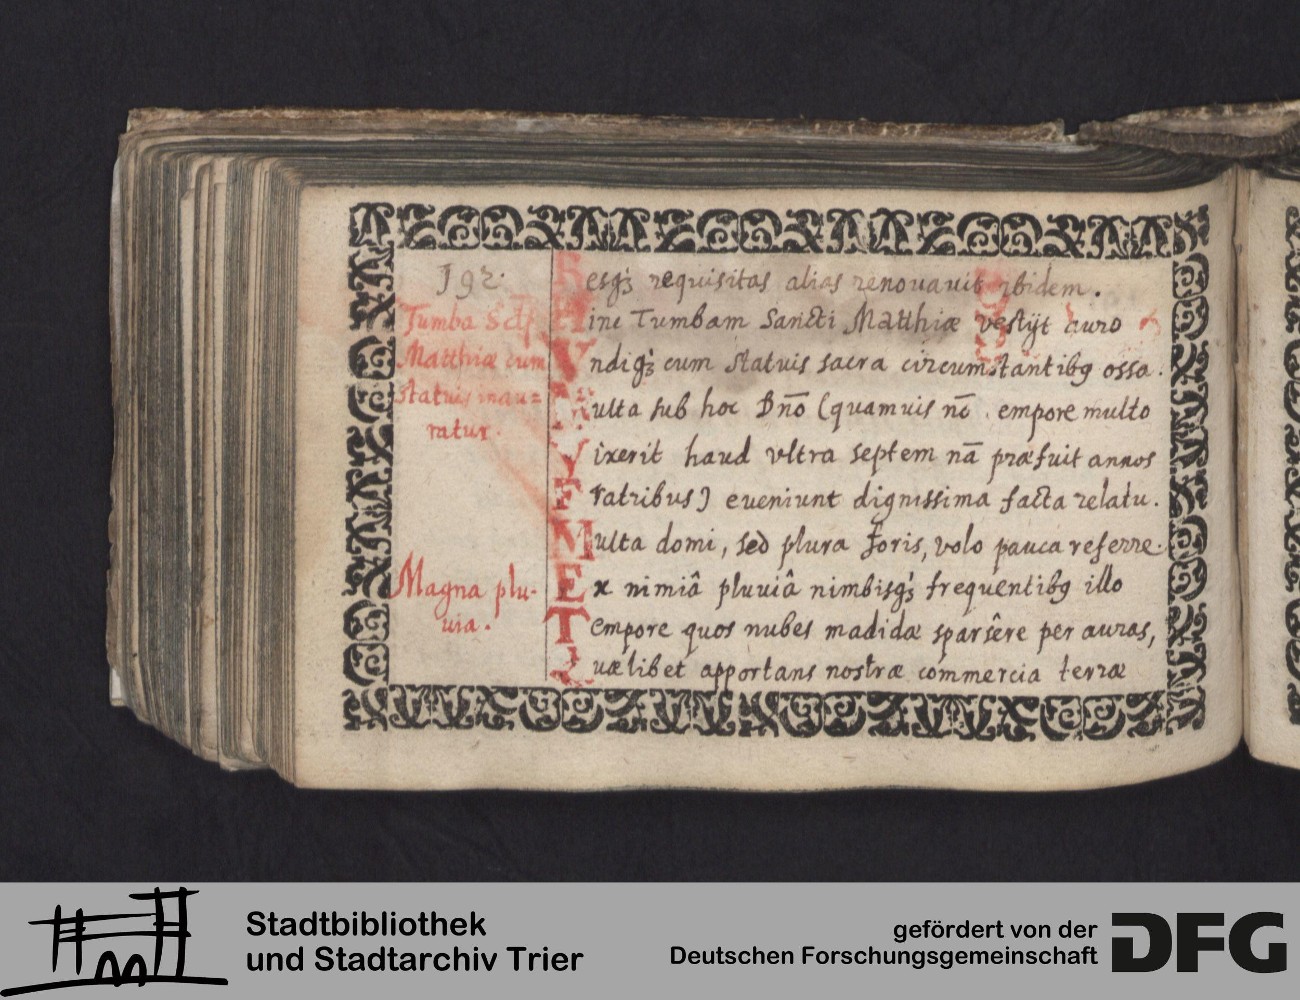 192.
Tumba Scti
Matthiæ cum
statuis inau=
ratur.
Magna plu-
uia.
Resqȝ requisitas alias renouauit ibidem.
Hinc Tumbam Sancti Matthiæ vestijt auro
Vndiqȝ cum statuis sacra circumstantibꝯ ossa.
Multa sub hoc Dn̄o (quamuis nō tempore multo
Vixerit haud vltra septem nā præfuit annos
Fratribus) eveniunt dignissima facta relatu.
Multa domi, sed plura foris, volo pauca referre.
Ex nimiâ pluuiâ nimbisqȝ frequentibꝯ illo
Tempore quos nubes madidæ sparsêre per auras,
Quælibet apportans nostræ commercia terræ
Stadtbibliothek
und Stadtarchiv Trier
gefördert von der
Deutschen Forschungsgemeinschaft
DFG